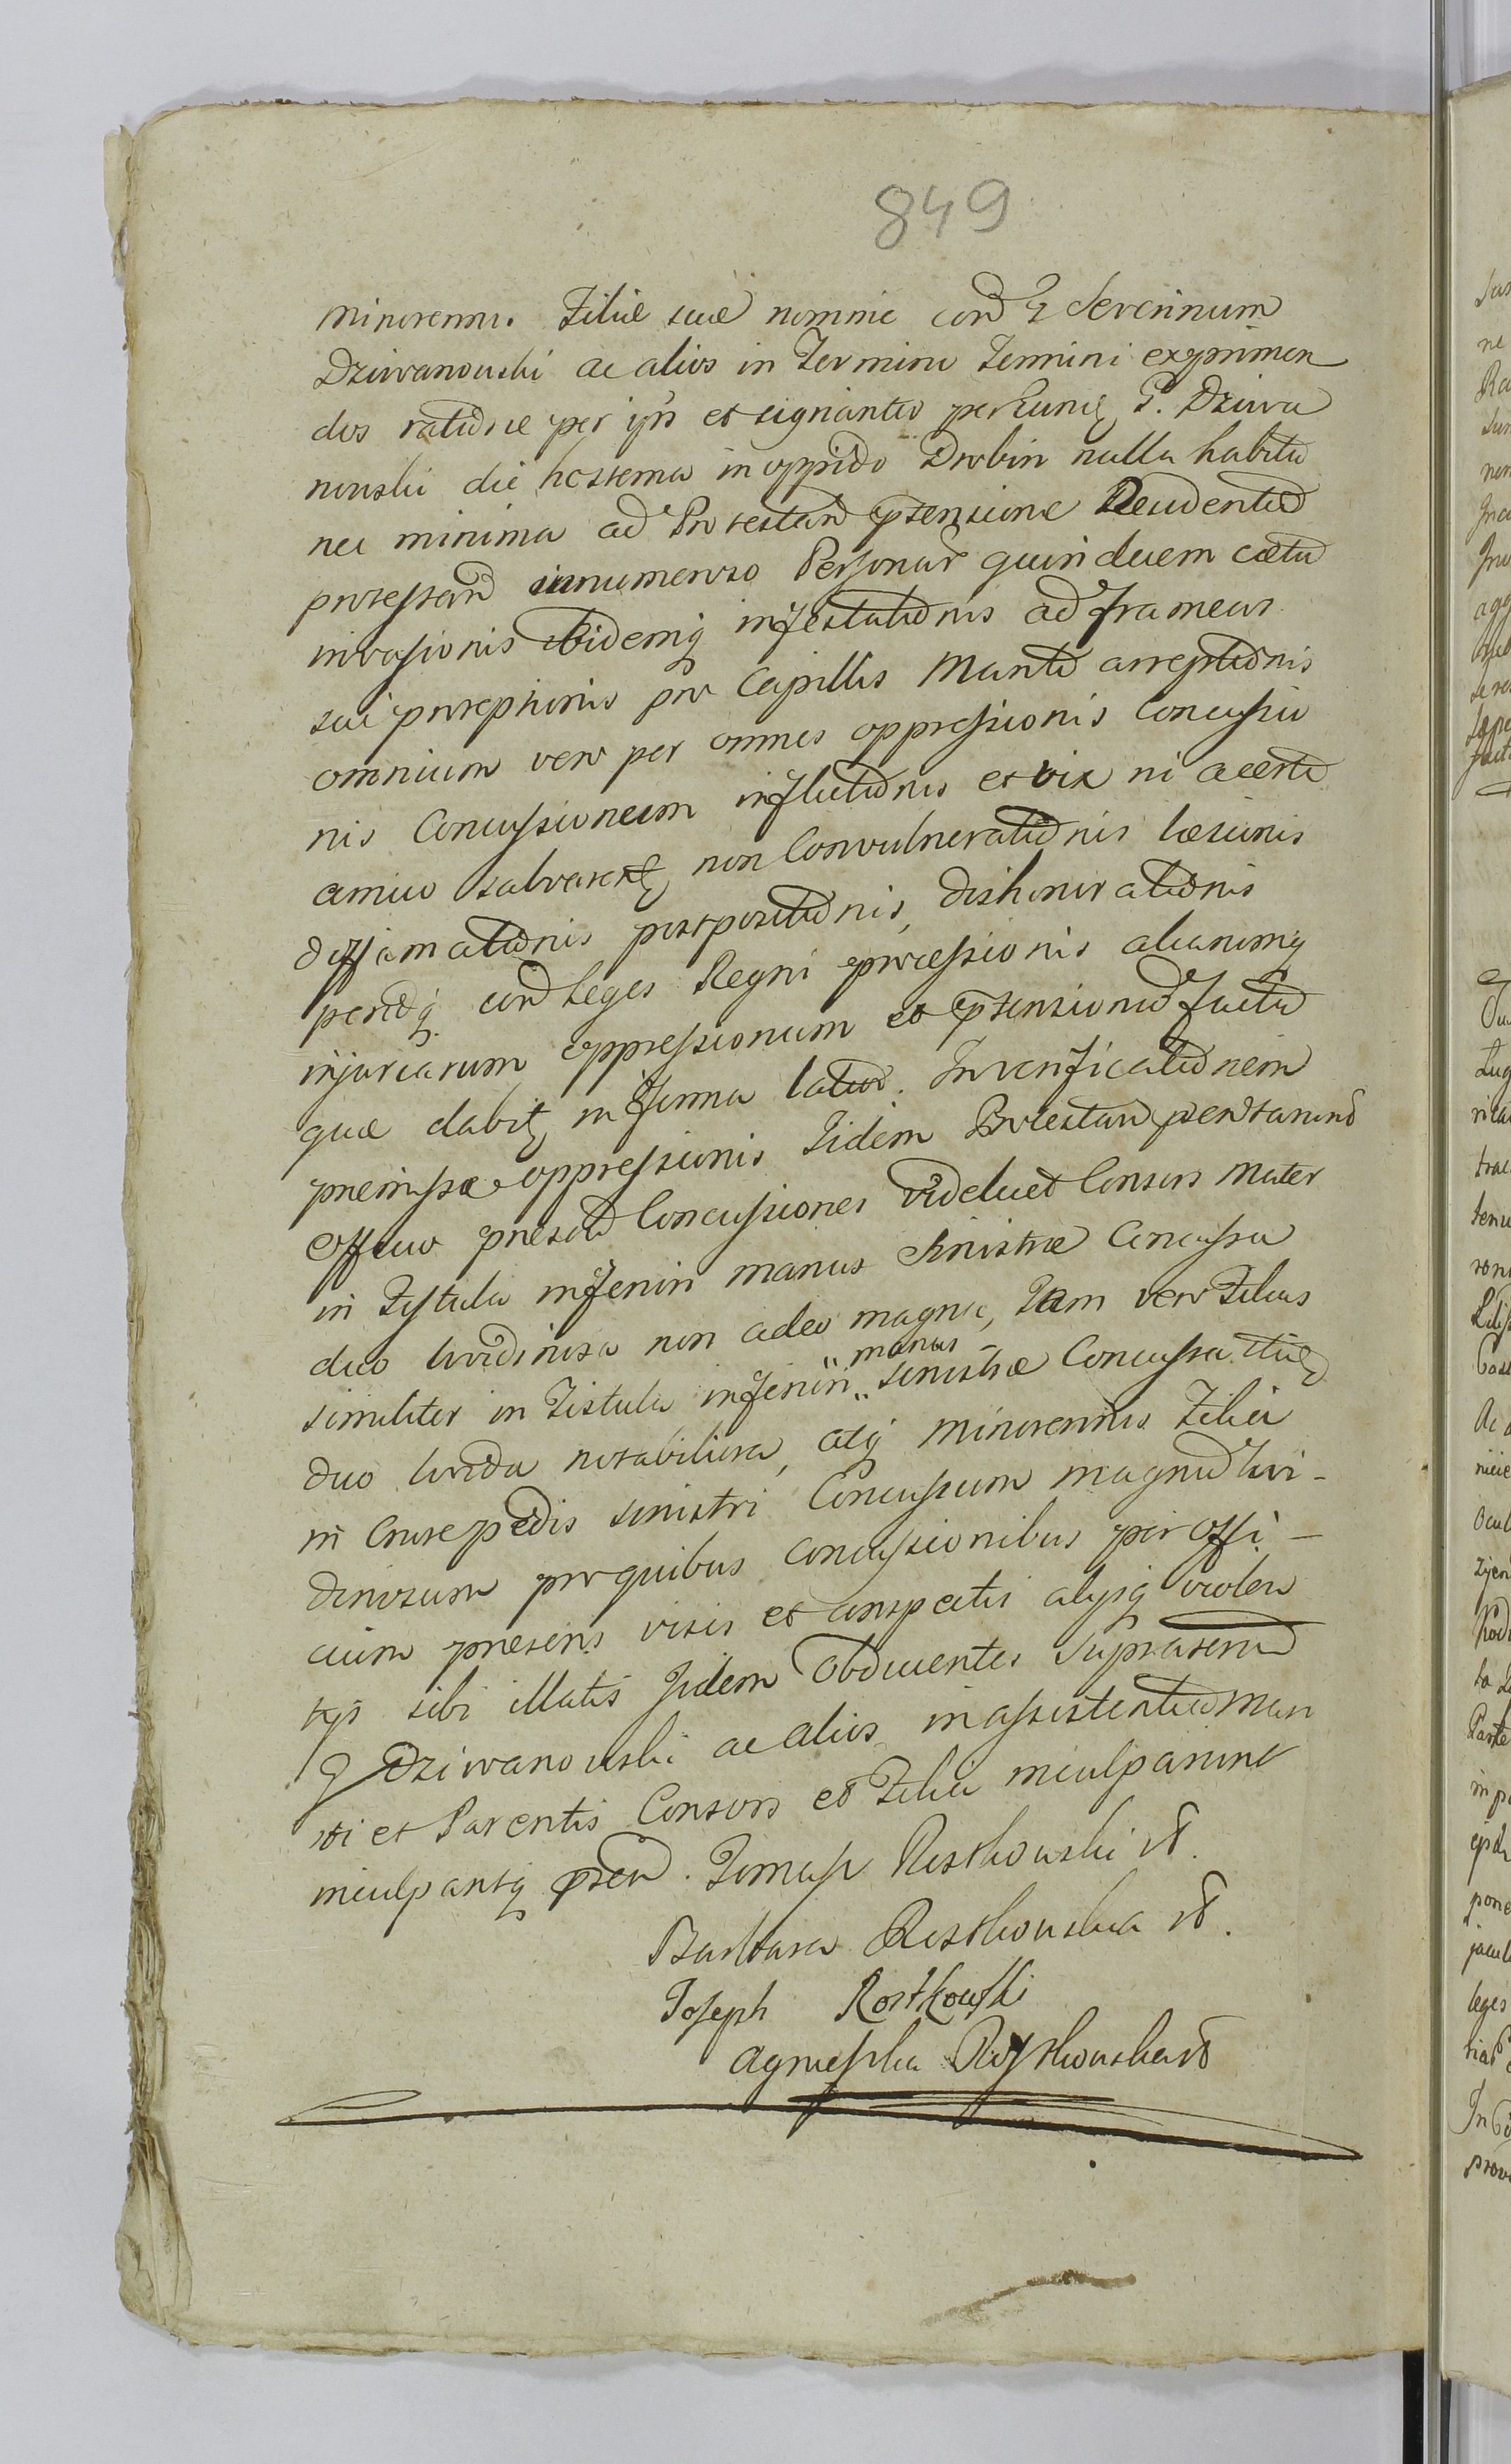 849
minorennis Filiae suae nomine con͠ G Severinum
Dziwanowski ac alios in Termino Termini exprimen
dos ratione per ipsũ et signanter per eundẽ G. Dziwa
nowski die hesterna in oppido Drobin nulla habita
nec minima ad Protestan͠ praetensione
protestan͠ in numeroso Personar͠ quindecem caetu
invasionis ibidemq infestationis ad frameas
sui provocationis pro Capillis Manu arreptionis
omnium vero per omnes oppressionis Concussio
nis Concussioneum inflictionis et vix ni a certo
amico salvarent͠ non Convulnerationis laesionis
diffamationis postpositionis, dishonorationis
penesq con͠ Leges Regni processionis aliarumq
injuriarum oppressionum et praetensionũ factũ
quae dabit͠ in forma latior. In verificationem
praemissae oppressionis Iidem Protestan͠ praesentarunt
officio praesenti Concussiones videlicet Consors Mater
in Fistula inferiori manus sinistrae Concussa
duo lividinosa non adeo magna, Tam vero Filius
similiter in Fistula inferiori "manus" sinistrae Concussa
duo livida notabiliora, atq minorennis Filia
in Crure pedis sinistri Concussum magnũ livi-
dinosum pro quibus concussionibus per offi-
cium praesens visis et conspectis alysq violen
tys sibi illatis Iidem Obducentes Suprascrip͠
G Dziwanowski ac alios in assistentia Mari
ti et Parentis Consors et Filia inculparunt
inculpantq praesen͠. Tomasz Rostkowski st.
Barbara Rostkowska st.
Joseph Rostkowski
Agnieszka Rostkowska st